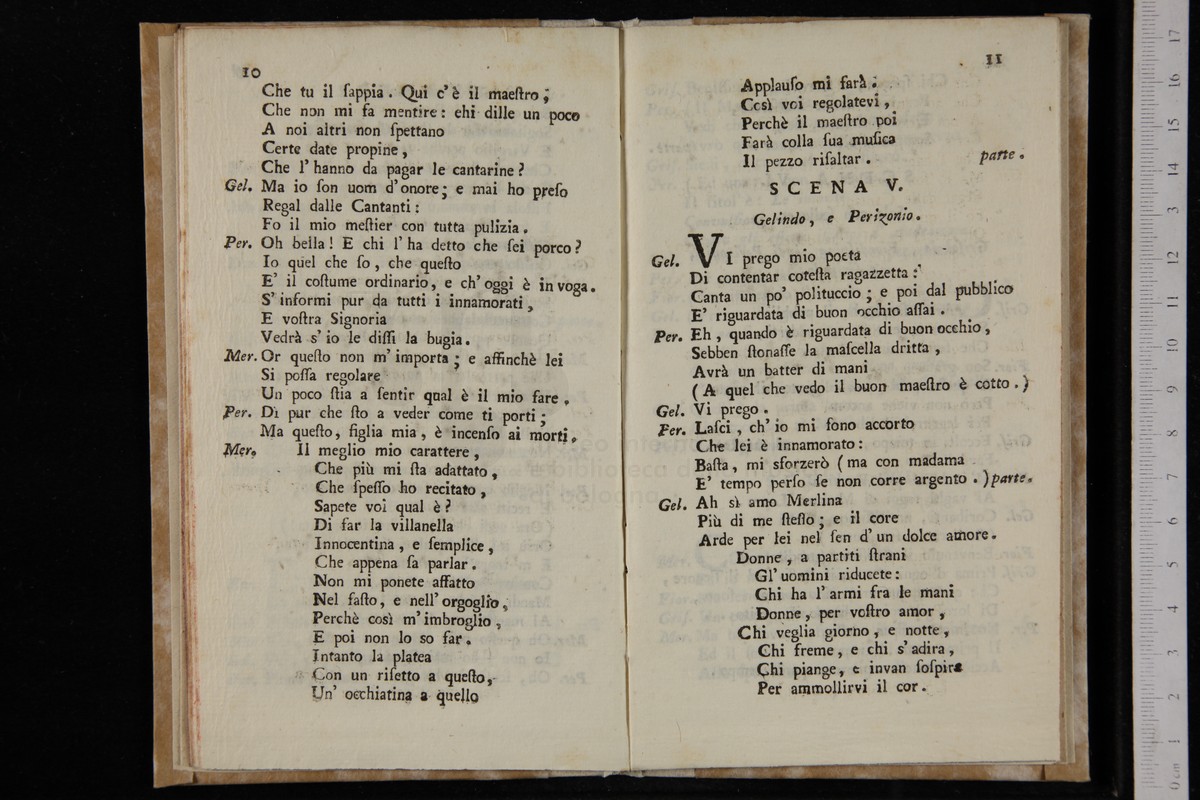 10
Che tu il ſappia. Qui c'è il maeſtro;
Che non mi fa mentire: ehi dille un poco
A noi altri non ſpettano
Certe date propine,
Che l'hanno da pagar le cantarine?
Gel. Ma io ſon uom d'onore; e mai ho preſo
Regal dalle Cantanti:
Fo il mio meſtier con tutta pulizia.
Per. Oh bella! E chi l'ha detto che ſei porco?
Io quel che fo, che queſto
E' il coſtume ordinario, e ch'oggi è in voga.
S'informi pur da tutti i innamorati,
E voſtra Signoria
Vedrà s'io le diſſi la bugia.
Mer. Or queſto non m'importa; e affinchè lei
Si poſſa regolare
Un poco ſtia a ſentir qual è il mio fare.
Per. Di pur che ſto a veder come ti porti;
Ma queſto, figlia mia, è incenſo ai morti.
Mer. Il meglio mio carattere,
Che più mi ſta adattato,
Che ſpeſſo ho recitato,
Sapete voi qual è?
Di far la villanella
Innocentina, e ſemplice,
Che appena ſa parlar.
Non mi ponete affatto
Nel faſto, e nell'orgoglio,
Perchè così m'imbroglio,
E poi non lo so far.
Intanto la platea
Con un riſetto a queſto,
Un' occhiatina a quello
11
Applauſo mi farà.
Così voi regolatevi,
Perchè il maeſtro poi
Farà colla ſua muſica
Il pezzo riſaltar. parte.
SCENA V.
Gelindo, e Perizonio.
Gel. VI prego mio poeta
Di contentar coteſta ragazzetta:
Canta un po' polituccio; e poi dal pubblico
E' riguardata di buon occhio aſſai.
Per. Eh, quando è riguardata di buon occhio,
Sebben ſtonaſſe la maſcella dritta,
Avrà un batter di mani
(A quel che vedo il buon maeſtro è cotto.)
Gel. Vi prego.
Per. Laſci, ch'io mi ſono accorto
Che lei è innamorato:
Baſta, mi sforzerò (ma con madama
E' tempo perſo ſe non corre argento.) parte.
Gel. Ah sì amo Merlina
Più di me ſteſſo; e il core
Arde per lei nel ſen d'un dolce amore.
Donne, a partiti ſtrani
Gl'uomini riducete:
Chi ha l'armi fra le mani
Donne, per voſtro amor,
Chi veglia giorno, e notte,
Chi freme, e chi s'adira,
Chi piange, e invan ſoſpira
Per ammollirvi il cor.